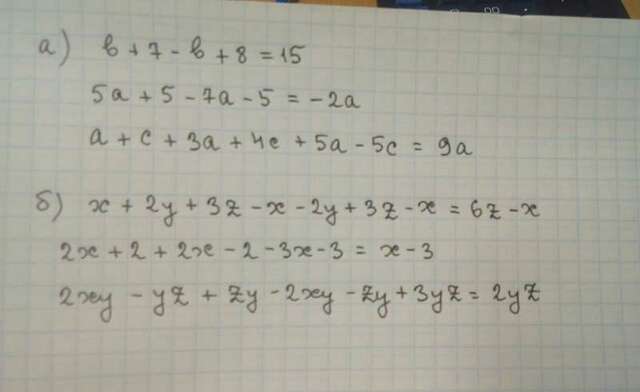 а) в + 7 - в + 8 = 15
5а + 5 - 7а - 5 = -2а
а + с + 3а + 4с + 5а - 5с = 9а
б) x + 2y + 3z - x - 2y + 3z - x = 6z - x
2x + 2 + 2x - 2 - 3x - 3 = x - 3
2xy - yz + zy - 2xy - zy + 3yz = 2yz